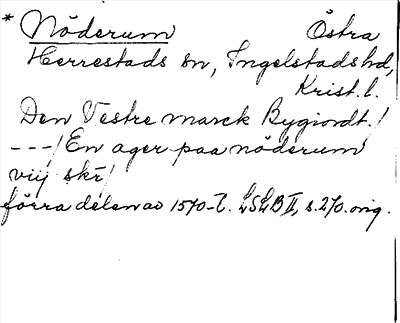 * Nöderum Östra
Herrestads sn, Ingelstads hd,
Krist. l.
Den Vestre marck Bygiordt./
---/ En ager paa nöderum
viij skr̄/
förra delen av 1570-t. LSLB II, s. 270. orig.